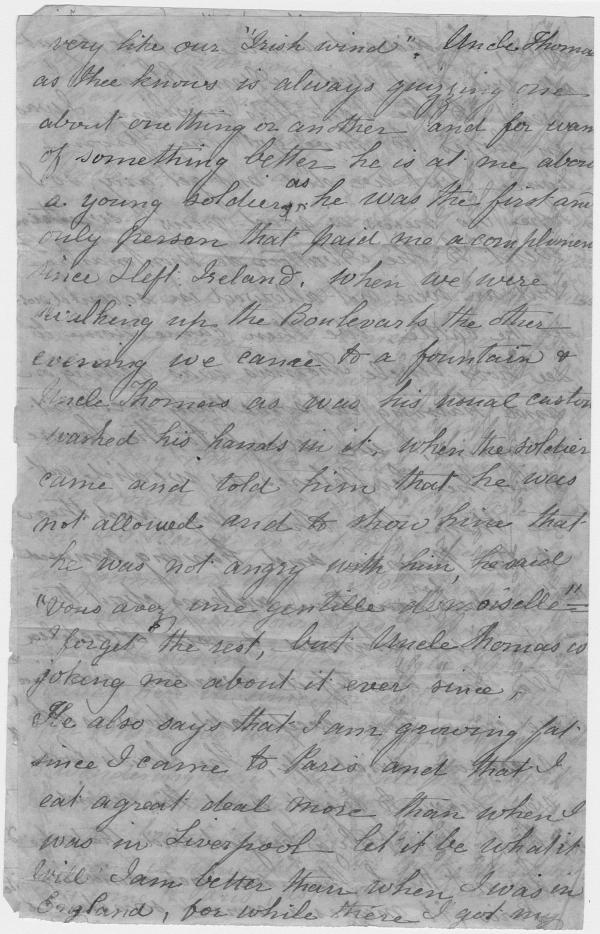 very like our "Irish wind". Uncle Thomas
as thee knows is always quizzing one
about one thing or another and for wan
of something better he is at me abou
a young soldier as he was the first and
only person that paid me a complimen
since I left Ireland. When we were
walking up the Boulevarts the other
evening we came to a fountain &
Uncle Thomas as was his usual custom
washed his hands in it, when the soldier
came and told him that he was
not allowed and to show him that
he was not angry with him, he said
"vous avez une gentille demoiselle"
I forget the rest, but Uncle Thomas is
joking me about it ever since,
He also says that I am growing fat
since I came to Paris and that I
eat a great deal more than when I
was in Liverpool let it be what it
will I am better than when I was in
England, for while there I got my